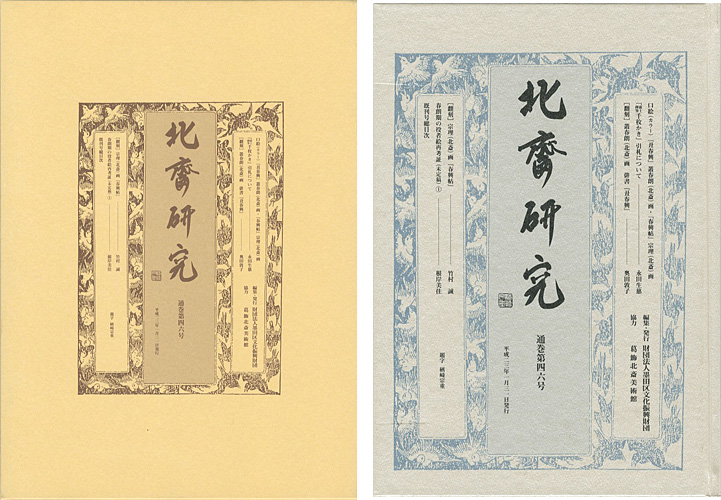 北齋研究
通巻第四六号
口絵(カラー)「丑春興」叢春朗(北斎)画・「春興帖」宗理(北斎)画
千枚かき」引札について
永田生慈
【翻刻】叢春朗(北斎)画 俳書「丑春興」
奥田敦子
【翻刻】宗理(北斎)画「春興帖」
竹村 誠
春朗期の役者絵再考証(未定稿)①
根岸美佳
既刊号総目次
編集・発行 財団法人墨田区文化振興財団
協力 葛飾北斎美術館
題字 楢崎宗重
北齋研究
通巻第四六号
口絵(カラー)「丑春興」叢春朗(北斎)画・「春興帖」宗理(北斎)画
千枚かき」引札について
永田生慈
【翻刻】叢春朗(北斎)画 俳書「丑春興」
奥田敦子
編集・発行 財団法人墨田区文化振興財団
協力 葛飾北斎美術館
【翻刻】宗理(北斎)画「春興帖」
竹村 誠
春朗期の役者絵再考証(未定稿)①
根岸美佳
既刊号総目次
題字 楢崎宗重